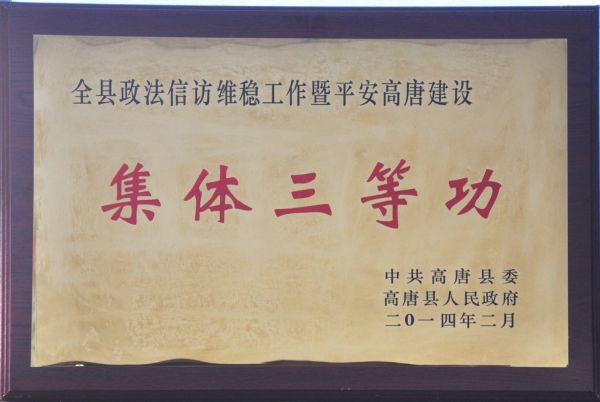 全县政法信访维稳工作暨平安高唐建设
集体三等功
中共高唐县委
高唐县人民政府
二0一四年二月